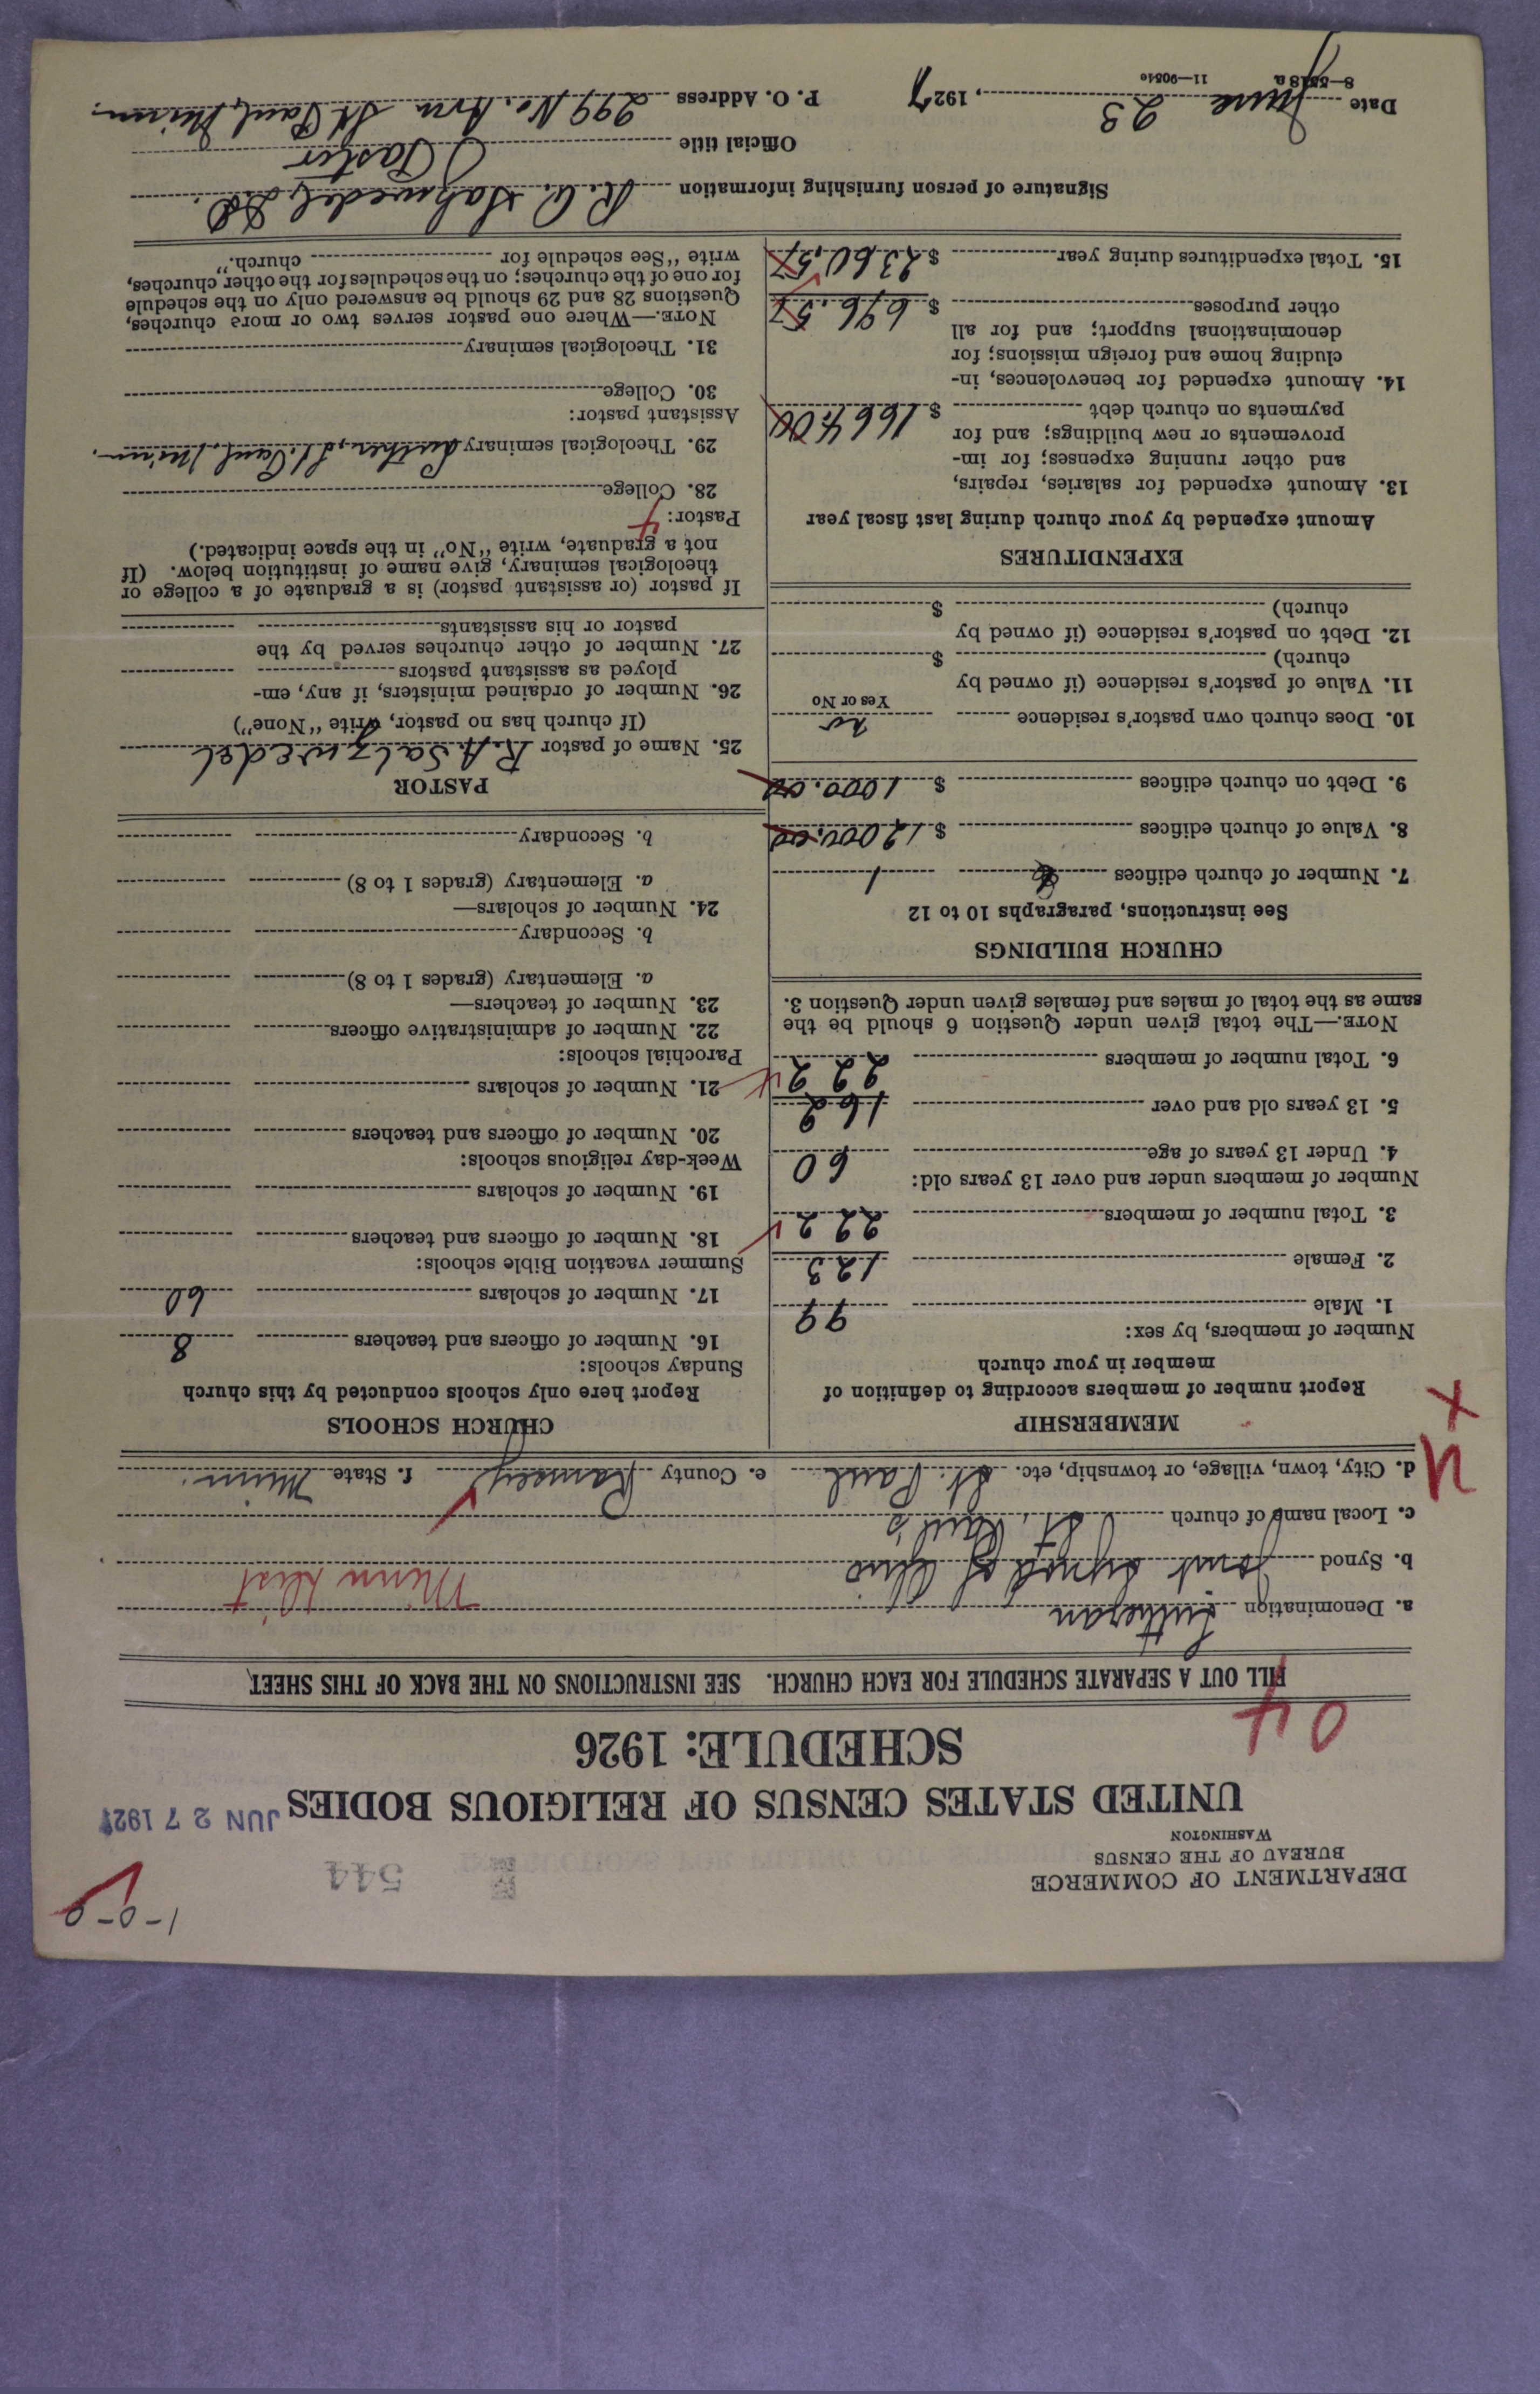 1-0-0
DEPARTMENT OF COMMERCE
BUREAU OF THE CENSUS
WASHINGTON
544
JUN 27 1927
UNITED STATES CENSUS OF RELIGIOUS BODIES
SCHEDULE: 1926
04
FILL OUT A SEPARATE SCHEDULE FOR EACH CHURCH. SEE INSTRUCTIONS ON THE BACK OF THIS SHEET
a. Denomination Lutheran Minn Dist
b. Synod Joint Synod of Ohio
c. Local name of church St. Paul's
d. City, town, village, or township, etc. St. Paul e. County Ramsey f. State Minn.
MEMBERSHIP
Report number of members according to definition of
member in your church
Number of members, by sex:
1. Male 99
2. Female 123
3. Total number of members 222
Number of members under and over 13 years old:
4. Under 13 years of age 60
5. 13 years old and over 162
6. Total number of members 222
NOTE.—The total given under Question 6 should be the
same as the total of males and females given under Question 3.
CHURCH BUILDINGS
See instructions, paragraphs 10 to 12
7. Number of church edifices 1
8. Value of church edifices $ 12000.00
9. Debt on church edifices $ 1000.00
10. Does church own pastor's residence no
Yes or No
11. Value of pastor's residence (if owned by
church) $
12. Debt on pastor's residence (if owned by
church) $
EXPENDITURES
Amount expended by your church during last fiscal year
13. Amount expended for salaries, repairs,
and other running expenses; for im-
provements or new buildings; and for
payments on church debt $ 1664.00
14. Amount expended for benevolences, in-
cluding home and foreign missions; for
denominational support; and for all
other purposes $ 696.57
15. Total expenditures during year $ 2360.57
CHURCH SCHOOLS
Report here only schools conducted by this church
Sunday schools:
16. Number of officers and teachers 8
17. Number of scholars 60
Summer vacation Bible schools:
18. Number of officers and teachers
19. Number of scholars
Week-day religious schools:
20. Number of officers and teachers
21. Number of scholars
Parochial schools:
22. Number of administrative officers
23. Number of teachers—
a. Elementary (grades 1 to 8)
b. Secondary
24. Number of scholars—
a. Elementary (grades 1 to 8)
b. Secondary
PASTOR
25. Name of pastor R.A. Salzwedel
(If church has no pastor, write "None")
26. Number of ordained ministers, if any, em-
ployed as assistant pastors
27. Number of other churches served by the
pastor or his assistants
If pastor (or assistant pastor) is a graduate of a college or
theological seminary, give name of institution below. (If
not a graduate, write "No" in the space indicated.)
Pastor: 4
28. College
29. Theological seminary Luther, St. Paul, Minn.
Assistant pastor:
30. College
31. Theological seminary
NOTE.—Where one pastor serves two or more churches,
Questions 28 and 29 should be answered only on the schedule
for one of the churches; on the schedules for the other churches,
write "See schedule for church."
Signature of person furnishing information R.A. Salzwedel
Official title Pastor
Date June 23, 1927 P. O. Address St. Paul, Minn.
8-5518a 11-9051c